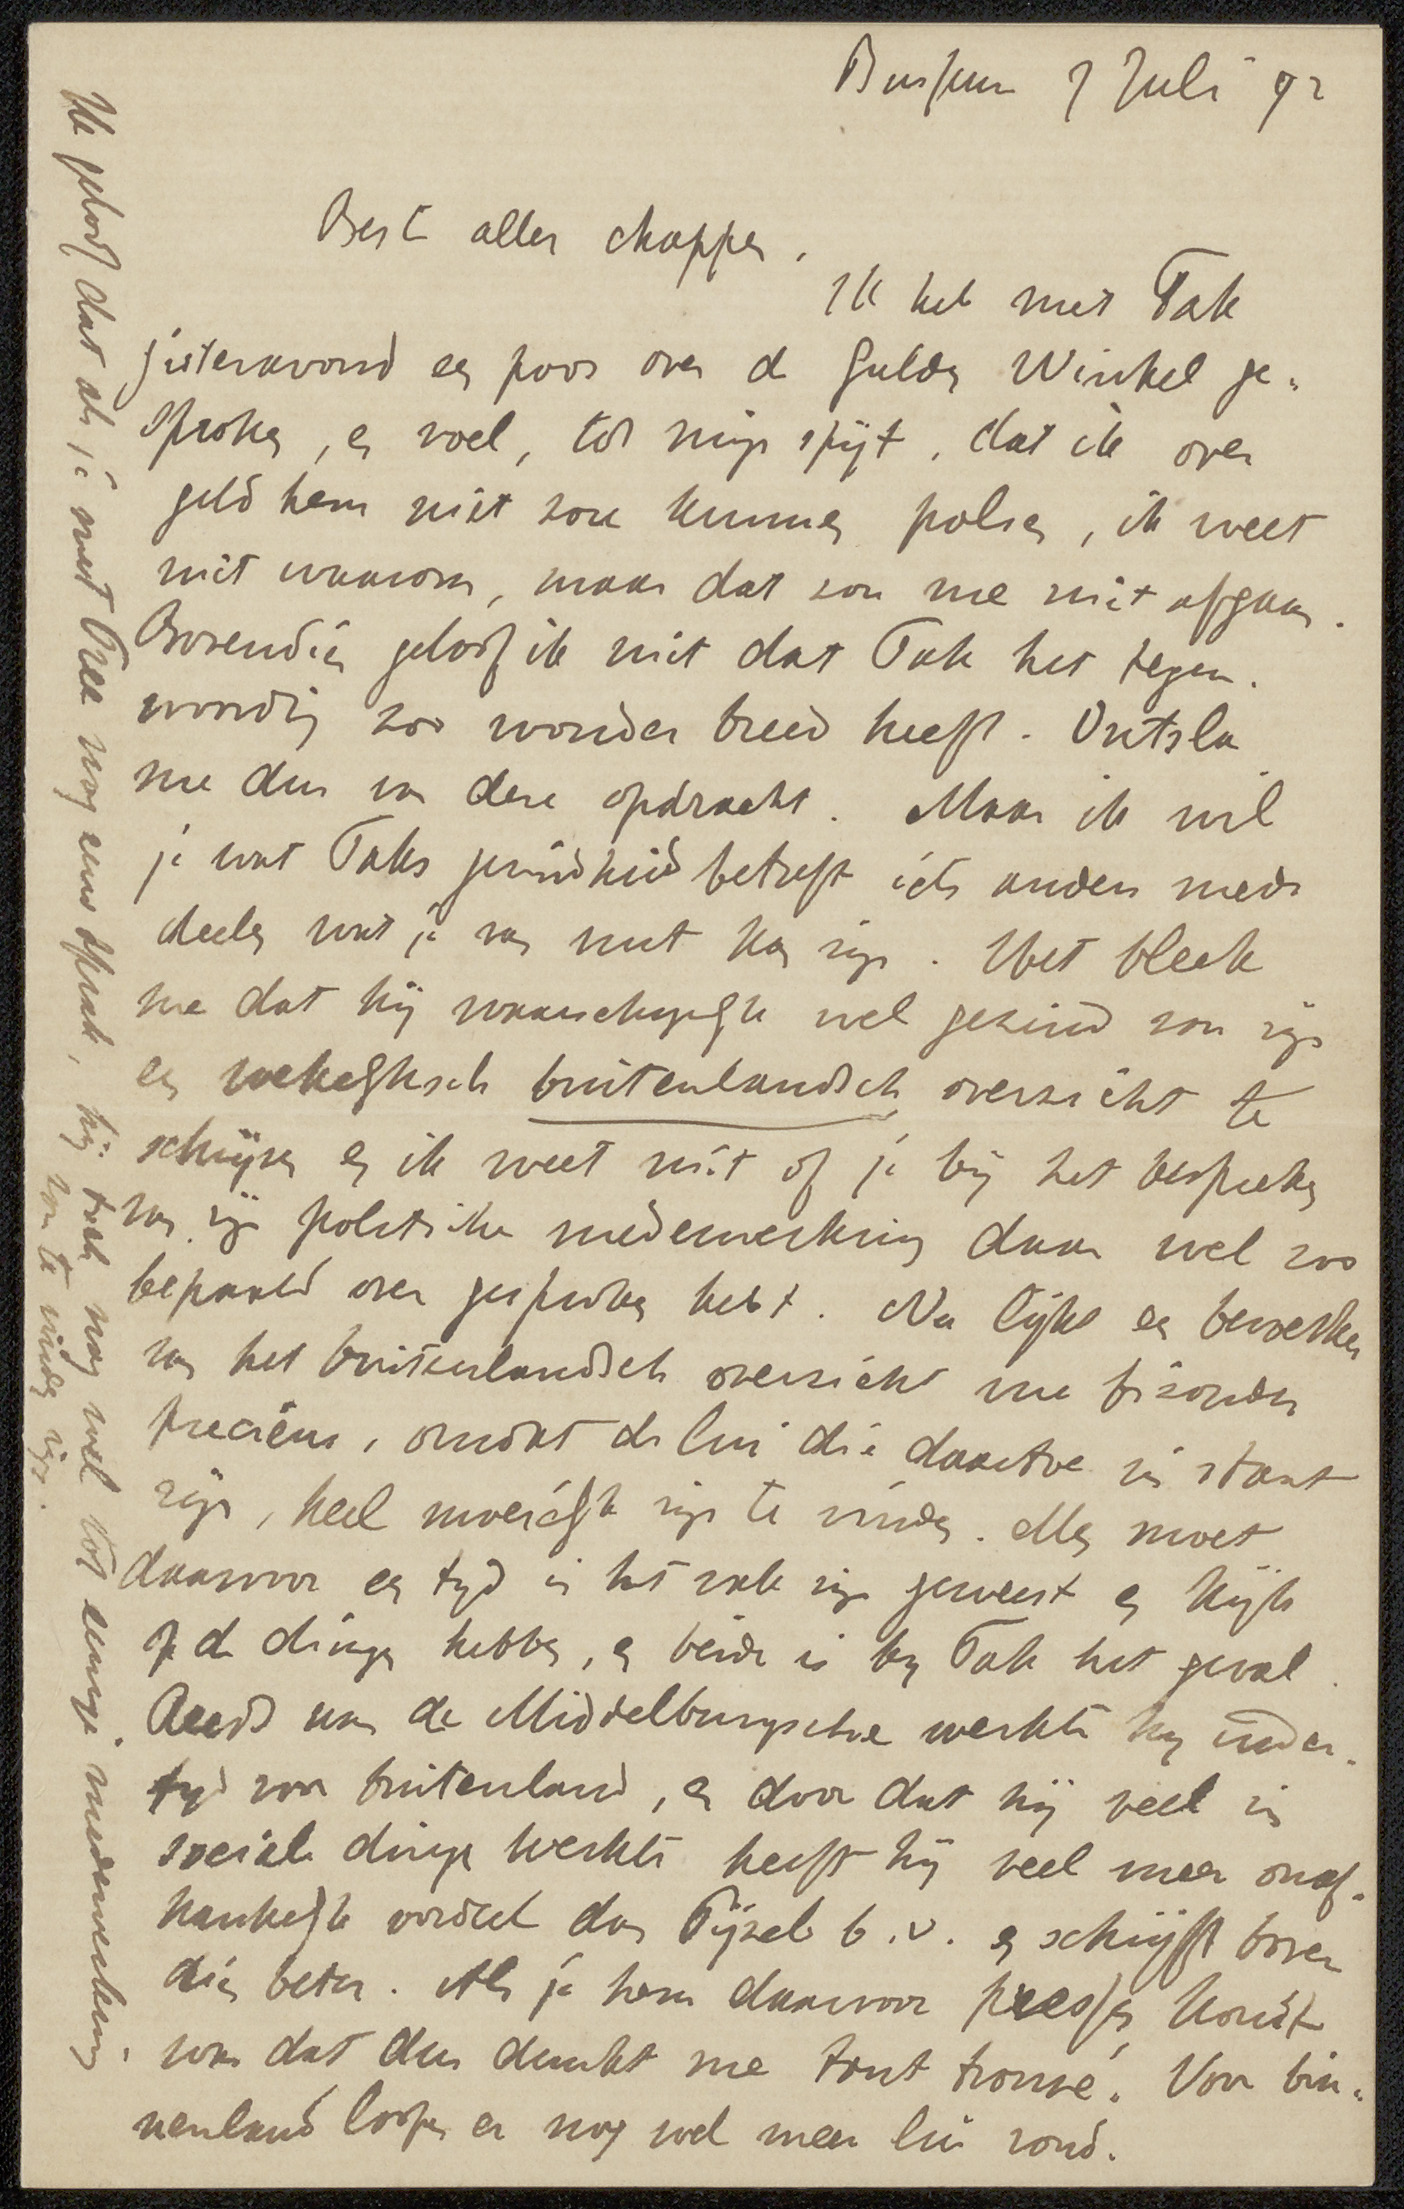 Bussum 7 Juli 92
Beste aller chappen,
Ik heb met Tak
gisteravond een poos over de Gulden Winkel ge-
sproken, en voel, tot mijn spijt, dat ik over
geld hem niet zou kunnen polsen, ik weet
niet waarom, maar dat zou me niet afgaan.
Bovendien geloof ik niet dat Tak het tegen-
woordig zoo wonder breed heeft. Ontsla
me dus van deze opdracht. Maar ik wil
je wat Taks gezindheid betreft iets anders mede
deelen wat je van nut kan zijn. Het bleek
me dat hij waarschijnlijk wel gezind zou zijn
een wekelijksch buitenlandsch overzicht te
schrijven en ik weet niet of je bij het bespreken
van zijn politieke medewerking daar wel zoo
bepaald over gesproken hebt. Nu lijkt een bewerker
van het buitenlandsch overzicht me bizonder
precieus, omdat de lui die daartoe in staat
zijn, heel moeielijk zijn te vinden. Men moet
daarvoor een tijd in het vak zijn geweest en kijk
op de dingen hebben, en beide is bij Tak het geval.
Reeds van de Middelburgsche werkte hij inder-
tijd voor buitenland, en door dat hij veel in
sociale dingen werkte heeft hij veel meer onaf-
hankelijk oordeel dan Tijzel b.v. en schrijft boven
dien beter. Als je hem daarvoor pressen kondt
was dat dus dunkt me tout trouvé. Voor bin-
nenland loopen er nog wel meer lui rond.
Ik geloof dat als je met Tak nog eens sprak, hij toch nog wel tot eenige medewerking
zou te vinden zijn.